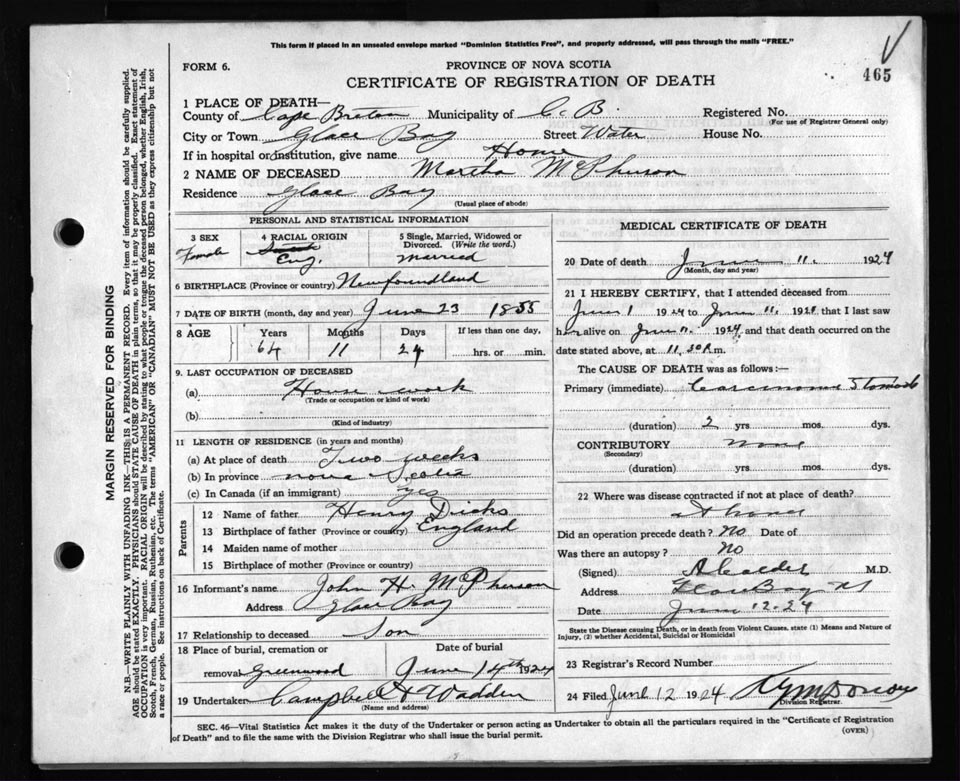 This form if placed in an unsealed envelope marked "Dominion Statistics Free", and properly addressed, will pass through the mails "FREE."
FORM 6.
PROVINCE OF NOVA SCOTIA
465
CERTIFICATE OF REGISTRATION OF DEATH
1 PLACE OF DEATH—
County of Cape Breton Municipality of C. B. Registered No.
(For use of Registrar General only)
City or Town Glace Bay Street Water House No.
If in hospital or institution, give name Home
2 NAME OF DECEASED Martha McPherson
Residence Glace Bay
(Usual place of abode)
PERSONAL AND STATISTICAL INFORMATION
3 SEX Female
4 RACIAL ORIGIN Eng.
5 Single, Married, Widowed or Divorced. (Write the word.) married
6 BIRTHPLACE (Province or country) Newfoundland
7 DATE OF BIRTH (month, day and year) June 23 1855
8 AGE Years Months Days If less than one day,
64 11 24 hrs. or min.
9. LAST OCCUPATION OF DECEASED
(a) House work
(Trade or occupation or kind of work)
(b)
(Kind of industry)
11 LENGTH OF RESIDENCE (in years and months)
(a) At place of death Two weeks
(b) In province nova Scotia
(c) In Canada (if an immigrant) yes
Parents
12 Name of father Henry Dicks
13 Birthplace of father (Province or country) England
14 Maiden name of mother
15 Birthplace of mother (Province or country)
16 Informant's name John H. McPherson
Address Glace Bay
17 Relationship to deceased Son
18 Place of burial, cremation or removal Greenwood
Date of burial June 14th 1924
19 Undertaker Campbell & Wadden
(Name and address)
MEDICAL CERTIFICATE OF DEATH
20 Date of death June 11. 1924
(Month, day and year)
21 I HEREBY CERTIFY, that I attended deceased from
June 1 1924 to June 11, 1924, that I last saw
her alive on June 11. 1924, and that death occurred on
date stated above, at 11.30 P.m.
The CAUSE OF DEATH was as follows:—
Primary (immediate) Carcinoma Stomach
(duration) 2 yrs. mos. dys.
CONTRIBUTORY none
(Secondary)
(duration) yrs. mos. dys.
22 Where was disease contracted if not at place of death?
At home
Did an operation precede death? No Date of
Was there an autopsy? No
(Signed) M.D.
Address Glace Bay
Date June 12.24
State the Disease causing Death, or in death from Violent Causes, state (1) Means and Nature of Injury, (2) whether Accidental, Suicidal or Homicidal
23 Registrar's Record Number
24 Filed June 12 1924
Division Registrar.
SEC. 46—Vital Statistics Act makes it the duty of the Undertaker or person acting as Undertaker to obtain all the particulars required in the "Certificate of Registration
of Death" and to file the same with the Division Registrar who shall issue the burial permit.
(OVER)
MARGIN RESERVED FOR BINDING
N.B.—WRITE PLAINLY WITH UNFADING INK—THIS IS A PERMANENT RECORD. Every item of information should be carefully supplied.
AGE should be stated EXACTLY. PHYSICIANS should STATE CAUSE OF DEATH in plain terms, so that it may be properly classified. Exact statement of
OCCUPATION is very important. RACIAL ORIGIN will be described by stating to what people or tongue the deceased person belonged, whether English, Irish,
Scotch, French, German, Russian, Ruthenian, etc. The terms "AMERICAN" OR "CANADIAN" MUST NOT BE USED as they express citizenship but not
a race or people. See instructions on back of Certificate.